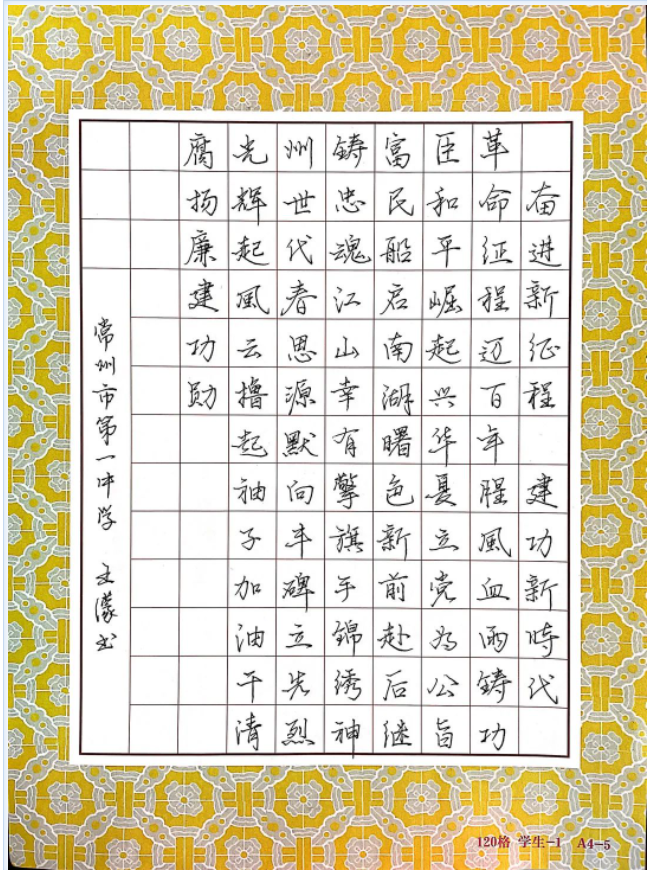 奋进新征程 建功新时代
革命征程迈百年腥风血雨铸功
臣和平崛起兴华夏立党为公旨
富民船启南湖曙色新前赴后继
铸忠魂江山幸有擎旗手锦绣神
州世代春思源默向丰碑立先烈
光辉起風云撸起袖子加油干清
腐扬廉建功勋
常州市第一中学 文濛书
120格 学生-1 A4-5